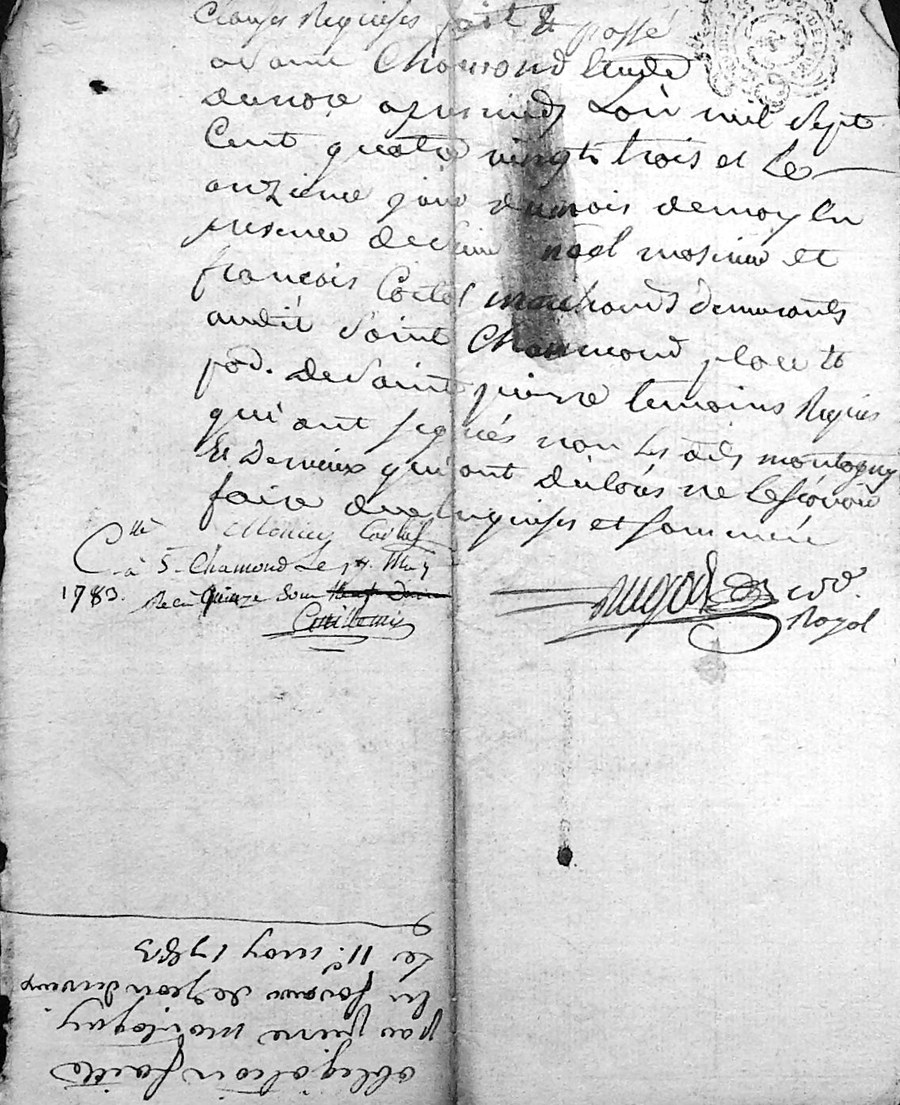 Clauses Requises fait & passé
a Saint Chamond Etude
du no.re apres midy Lan mil Sept
Cent quatre vingts trois et Le
onzieme jour du mois de may En
presence de Sieur noel mosnier et
françois Cortel marchands demeurants
audit Saint Chamond place
de Saint pierre temoins Requis
qui ont signés non Les dits montagny
Et Dervieux qui ont de ne Le sçavoir
faire de ce Enquises et sommés
C.llé Cortel
à St. Chamond Le May
1783. Recu Quinze Sous
Royal
obligation faitte
par pierre montagny
En faveur de Jean dervieux
Le 11.e may 1783